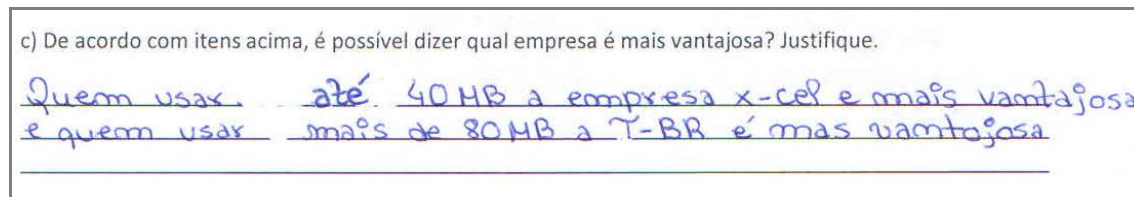 c) De acordo com itens acima, é possível dizer qual empresa é mais vantajosa? Justifique.
Quem usar. até. 40 MB a empresa x-cel e mais vamtajosa
e quem usar mais de 80 MB a T-BR é mas vamtojosa